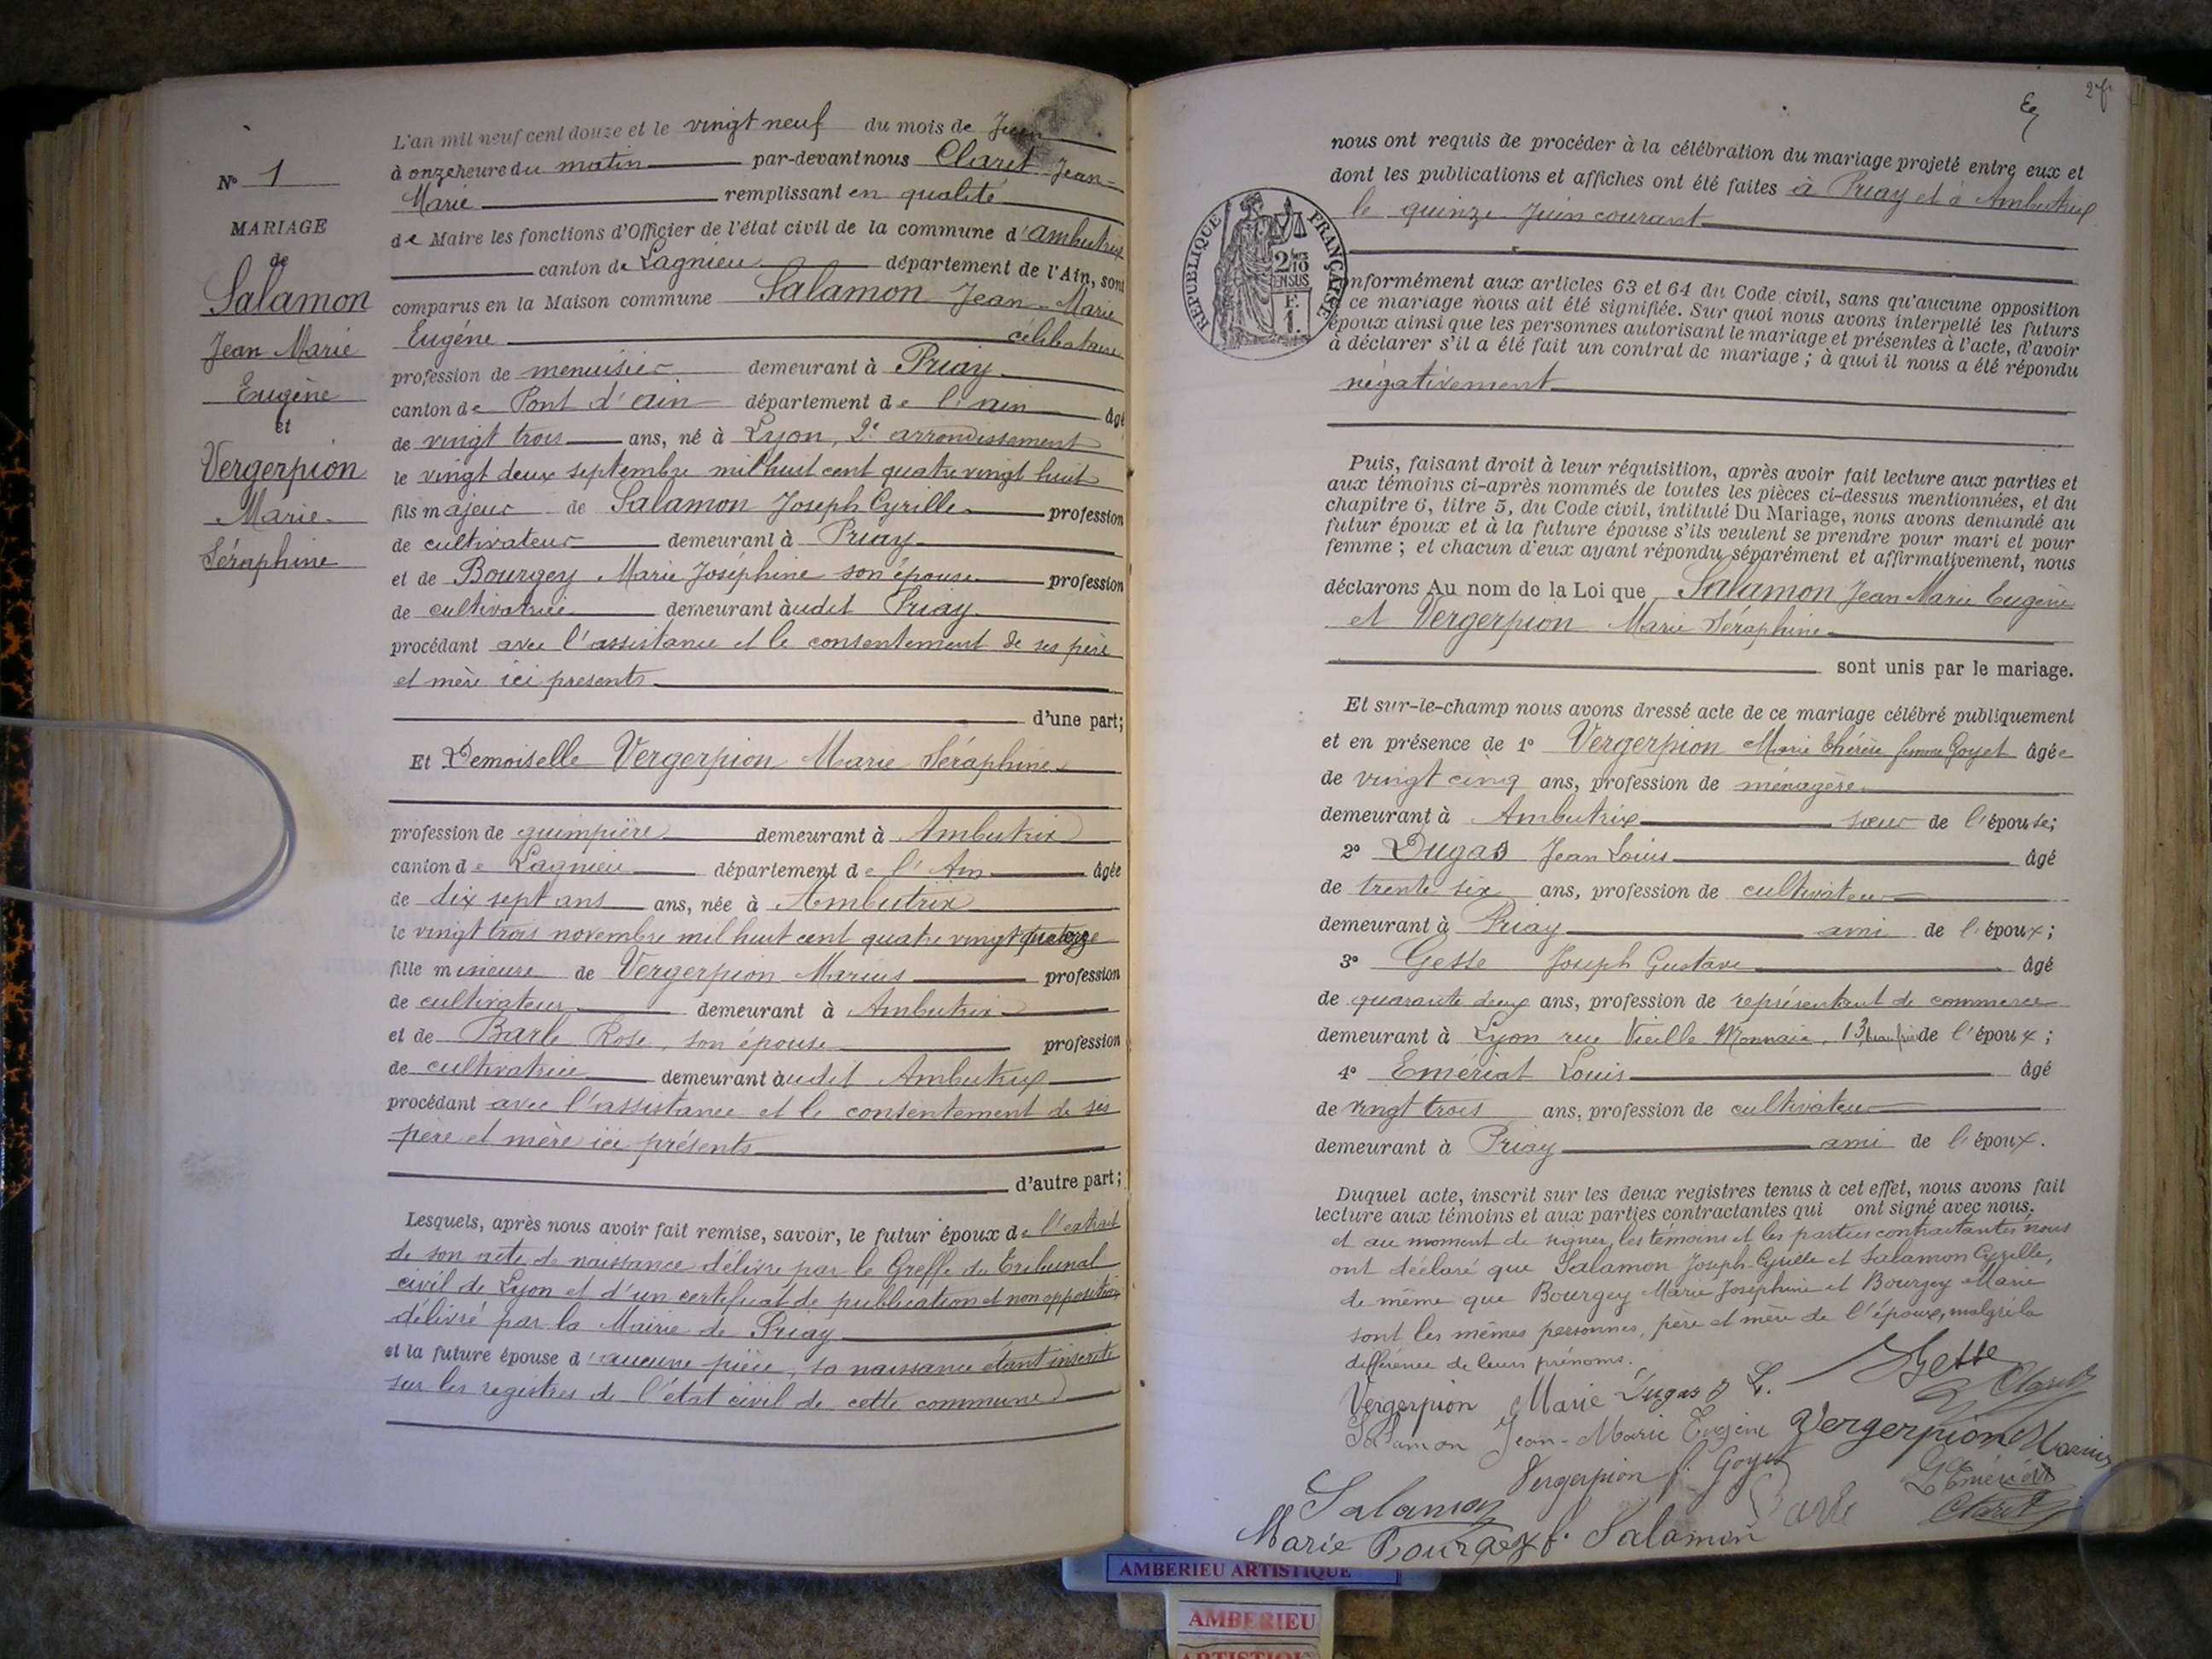 L'an mil neuf cent douze et le vingt neuf du mois de Juin
à onze heure du matin par-devant nous Claret Jean-
Marie remplissant en qualité
de Maire les fonctions d'Officier de l'état civil de la commune d'Ambutrix
canton de Lagnieu département de l'Ain, sont
comparus en la Maison commune Salamon Jean-Marie
Eugéne célibataire
profession de menuisier demeurant à Priay
canton de Pont d'ain département de l'ain âgé
de vingt trois ans, né à Lyon, 2e arrondissement
le vingt deux septembre mil huit cent quatre vingt huit
fils majeur de Salamon Joseph Cyrille profession
de cultivateur demeurant à Priay
et de Bourgey Marie Joséphine son épouse profession
de cultivatrice demeurant àudit Priay
procédant avec l'assistance et le consentement de ses père
et mère ici presents
d'une part;
Et Demoiselle Vergerpion Marie Séraphine
profession de guimpière demeurant à Ambutrix
canton de Lagnieu département de l'Ain âgée
de dix sept ans ans, née à Ambutrix
le vingt trois novembre mil huit cent quatre vingt quatorze
fille mineure de Vergerpion Marius profession
de cultivateur demeurant à Ambutrix
et de Barle Rose, son épouse profession
de cultivatrice demeurant àudit Ambutrix
procédant avec l'assistance et le consentement de ses
père et mère ici présents
d'autre part;
Lesquels, après nous avoir fait remise, savoir, le futur époux de l'extrait
de son acte de naissance délivré par le Greffe du Tribunal
civil de Lyon et d'un certificat de publication et non opposition
délivré par la Mairie de Priay
et la future épouse d'aucune pièce, sa naissance étant inscrite
sur les registres de l'état civil de cette commune
No 1
MARIAGE
de
Salamon
Jean Marie
Eugène
et
Vergerpion
Marie
Séraphine
nous ont requis de procéder à la célébration du mariage projeté entre eux et
dont les publications et affiches ont été faites à Priay et à Ambutrix
le quinze Juin courant
RÉPUBLIQUE FRANÇAISE
2/10
EN SUS
F.
1.
onformément aux articles 63 et 64 du Code civil, sans qu'aucune opposition
ce mariage nous ait été signifiée. Sur quoi nous avons interpellé les futurs
époux ainsi que les personnes autorisant le mariage et présentes à l'acte, d'avoir
à déclarer s'il a été fait un contrat de mariage ; à quoi il nous a été répondu
négativement
Puis, faisant droit à leur réquisition, après avoir fait lecture aux parties et
aux témoins ci-après nommés de toutes les pièces ci-dessus mentionnées, et du
chapitre 6, titre 5, du Code civil, intitulé Du Mariage, nous avons demandé au
futur époux et à la future épouse s'ils veulent se prendre pour mari et pour
femme ; et chacun d'eux ayant répondu séparément et affirmativement, nous
déclarons Au nom de la Loi que Salamon Jean Marie Eugène
et Vergerpion Marie Séraphine
sont unis par le mariage.
Et sur-le-champ nous avons dressé acte de ce mariage célébré publiquement
et en présence de 1° Vergerpion Marie Thérèse femme Goyet âgée
de vingt cinq ans, profession de ménagère
demeurant à Ambutrix sœur de l'épouse;
2° Dugas Jean Louis âgé
de trente six ans, profession de cultivateur
demeurant à Priay ami de l'époux;
3° Gesse Joseph Gustave âgé
de quarante deux ans, profession de représentant de commerce
demeurant à Lyon rue Vieille Monnaie, 13, beau frère de l'époux;
4° Emériat Louis âgé
de vingt trois ans, profession de cultivateur
demeurant à Priay ami de l'époux.
Duquel acte, inscrit sur les deux registres tenus à cet effet, nous avons fait
lecture aux témoins et aux parties contractantes qui ont signé avec nous.
et au moment de signer, les témoins et les parties contractantes nous
ont déclaré que Salamon Joseph-Cyrille et Salamon Cyrille,
de même que Bourgey Marie Joséphine et Bourgey Marie
sont les mêmes personnes, père et mère de l'époux, malgré la
différence de leurs prénoms.
Vergerpion Marie Dugas J L. Gesse Claret
Salamon Jean-Marie Eugène Vergerpion Marius
Vergerpion f. Goyet L Emériat
Salamon Barle Claret
Marie Bourgey f. Salamon
AMBERIEU ARTISTIQUE
AMBERIEU
ARTISTIQUE